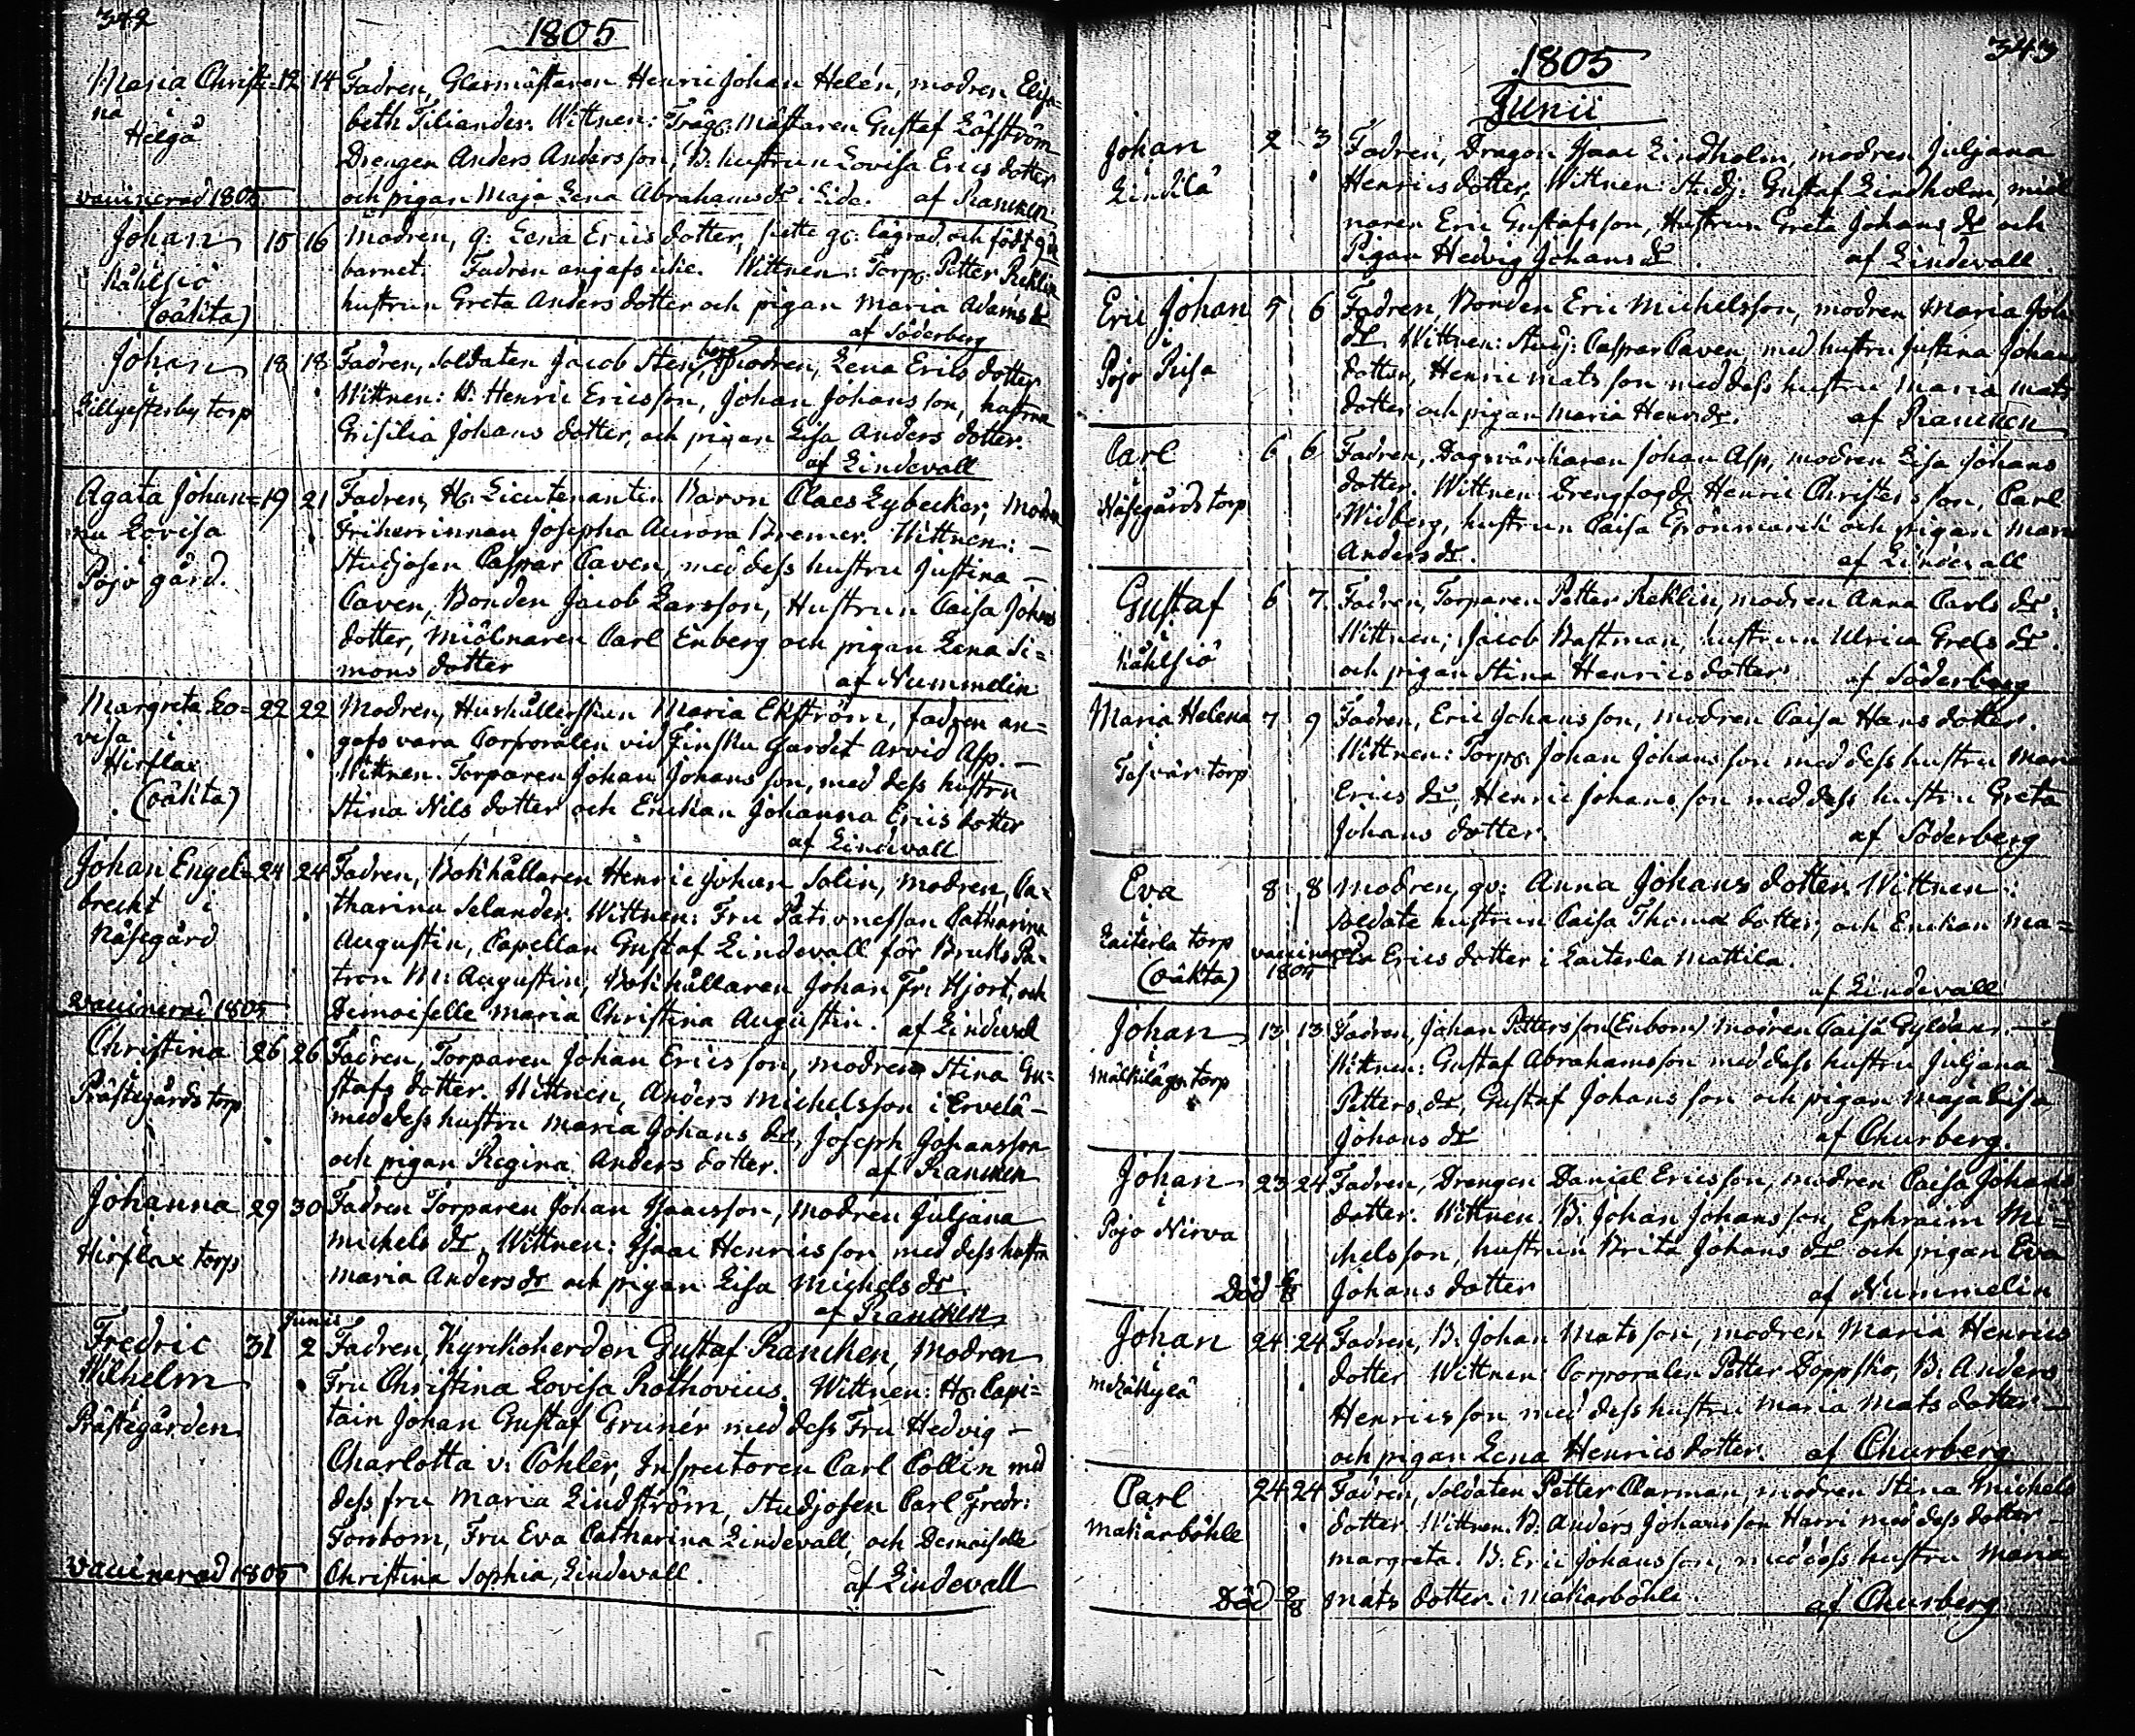 342
1805
Maria Christi= 12 14 Fadren, Glasmästaren Henric Johan Helén, modren Elisa=
na i beth Tiliander. Wittnen: Trägs: Mästaren Gustaf Löfström
Helgå Drengen Anders Andersson, B. hustrun Lovisa Erics dotter
vaccinerad 1805 och pigan Maja Lena Abrahams dr i Lide. af Rancken
Johan 15 16 Modren, q: Lena Erics dotter, lägrad, och födt
barnet. Fadren angafs icke. Wittnen: Torp: Petter Reklin
Kåhlsiö hustrun Greta Anders dotter och pigan Maria Adams dr
(oäkta) af Söderberg
Johan 18 18 Fadren, Soldaten Jacob Stenberg, Modren, Lena Erics dotter
Wittnen: B: Henric Ericsson, Johan Johansson, hustrun
Lillgesterby torp Grisilia Johans dotter, och pigan Lisa Anders dotter.
af Lindevall
Agata Johan= 19 21 Fadren, Hr: Lieutenanten Baron Claes Lybecker, Modren
na Lovisa Friherrinnan Josepha Aurora Bremer. Wittnen: —
Pojo gård. Studjosen Caspar Caven, med dess hustru Justina —
Caven, Bonden Jacob Larsson, Hustrun Caisa Johans
dotter, Miölnaren Carl Enberg och pigan Lena Si=
mons dotter af Nummelin
Margreta Lo= 22 22 Modren, Hushållerskan Maria Ekström, fadren an=
visa i gafs vara Corporalen vid Finska Gardet Arvid Asp. —
Hirflax Wittnen. Torparen Johan Johansson, med dess hustru
(oäkta) Stina Nils dotter och Enkan Johanna Erics dotter
af Lindevall
Johan Engel= 24 24 Fadren, Bokhållaren Henric Johan Solin, Modren, Ca=
brecht i tharina Selander. Wittnen: Fru Patronessan Catharina
Näsegård Augustin, Capellan Gustaf Lindevall för Bruks Pa=
tron M: Augustin, Bokhållaren Johan Fr: Hjort, och
vaccinerad 1805 Demoiselle Maria Christina Augustin. af Lindevall
Christina 26 26 Fadren, Torparen Johan Ericsson, modren Stina Gu=
stafs dotter. Wittnen, Anders Michelsson i Ervelä —
Prästegårds torp med dess hustru Maria Johans dr, Joseph Johansson
och pigan Regina Anders dotter. af Rancken
Johanna 29 30 Fadren Torparen Johan Isaacsson, Modren Juljana
Michels dr, Wittnen: Isaac Henricsson med dess hustru
Hirflax torp Maria Anders dr och pigan Lisa Michels dr.
af Rancken
Junii
Fredric 31 2 Fadren, Kyrkoherden Gustaf Rancken, Modren
Wilhelm Fru Christina Lovisa Rothovius. Wittnen: Hr: Capi=
tain Johan Gustaf Grunér med dess Fru Hedvig —
Prästegården Charlotta v: Cöhler, Inspectoren Carl Collin med
dess fru Maria Lindström, Studjosen Carl Fredr:
Forsbom, Fru Eva Catharina Lindevall, och Demoiselle
vaccinerad 1805 Christina Sophia Lindevall. af Lindevall
343
1805
Junii
Johan 2 3 Fadren, Dragon Isaac Lindholm, modren Juljana
Lindilä Henrics dotter, Wittnen: Studj: Gustaf Lindholm, miöl
naren Eric Gustafsson, Hustrun Greta Johans dr och
Pigan Hedvig Johans dr. af Lindevall
Eric Johan 5 6 Fadren, Bonden Eric Michelsson, modren Maria Joh
i dr, Wittnen: Studj: Caspar Caven, med hustru Justina Johans
Pojo Risa dotter, Henric Matsson med dess hustru Maria Mats
dotter och pigan Maria Henr: dr. af Rancken
Carl 6 6 Fadren, Dagsvärkaren Johan Asp, modren Lisa Johans
i dotter. Wittnen: Drengfogd: Henric Christersson, Carl
Näsegårds torp Widberg, hustrun Caisa Grönmark och pigan Maria
Anders dr. af Lindevall
Gustaf 6 7 Fadren, Torparen Petter Reklin, modren Anna Carls dr.
i Wittnen: Jacob Bastman, hustrun Ulrica Grels dr.
Kåhlsiö och pigan Stina Henrics dotter af Söderberg
Maria Helena 7 9 Fadren, Eric Johansson, modren Caisa Hans dotter.
i Wittnen: Torp: Johan Johansson med dess hustru Maria
torp Erics dr, Henric Johansson med dess hustru Greta
Johans dotter. af Söderberg
Eva 8 8 Modren, qv: Anna Johans dotter. Wittnen:
i Soldate hustrun Caisa Thomas dotter, och Enkan Ma=
Laiterla torp vaccinerad ria Erics dotter i Laiterla Mattila.
(oäkta) 1805 af Lindevall
Johan 13 13 Fadren, Johan Pettersson (Enbom) Modren Caisa Gyldan. —
i Wittnen: Gustaf Abrahamsson med dess hustru Juljana
torp Petters dr, Gustaf Johansson och pigan Maja Lisa
Johans dr af Churberg.
Johan 23 24 Fadren, Drengen Daniel Ericsson, modren Caisa Johans
i dotter. Wittnen. B: Johan Johansson, Ephraim Mi=
Pojo Nirva chelsson, hustrun Brita Johans dr och pigan Eva
Död 6/8 Johans dotter af Nummelin
Johan 24 24 Fadren, B: Johan Matsson, modren Maria Henrics
i dotter Wittnen: Corporalen Petter Doppsko, B: Anders
Henricsson med dess hustru Maria Mats dotter —
och pigan Lena Henrics dotter. af Churberg
Carl 24 24 Fadren, Soldaten Petter Carman, modren Stina Michels
Makarböhle dotter. Wittnen. B: Anders Johansson Harri med dess dotter —
Margreta. B: Eric Johansson, med dess hustru Maria
Död 2/8 Mats dotter i Makarböhle. af Churberg